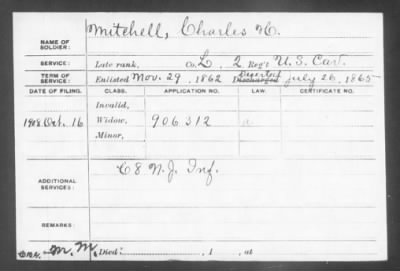 NAME OF SOLDIER: Mitchell, Charles H.
SERVICE: Late rank, Co. L, 2 Reg't U.S. Cav.
TERM OF SERVICE: Enlisted Nov. 29, 1862 Deserted Discharged July 26, 1865
DATE OF FILING. CLASS. APPLICATION NO. LAW. CERTIFICATE NO.
Invalid,
1908 Oct. 16 Widow, 906312
Minor,
ADDITIONAL SERVICES: C 8 N.J. Inf.
REMARKS:
M.M. Died , 1 , at